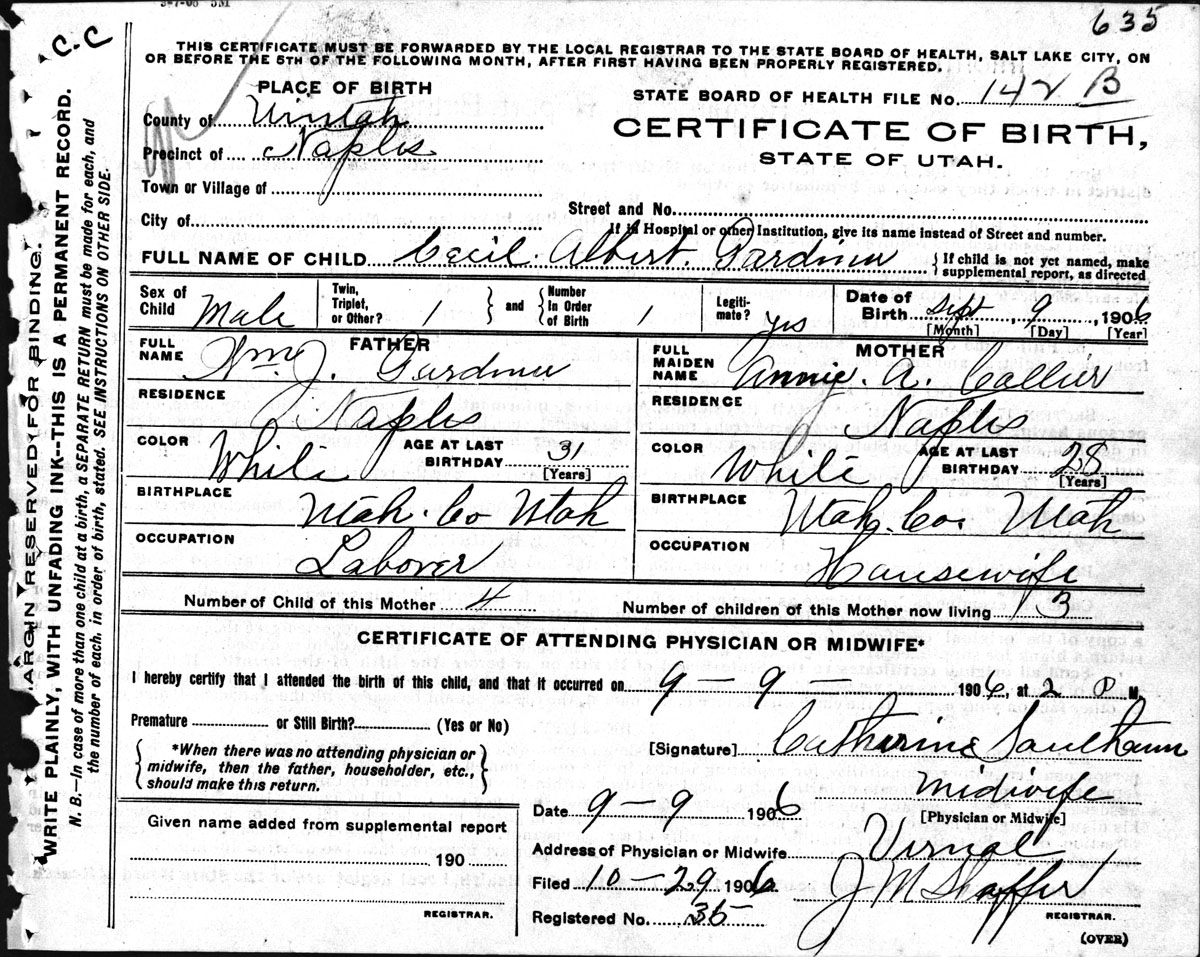 635
C.C
THIS CERTIFICATE MUST BE FORWARDED BY THE LOCAL REGISTRAR TO THE STATE BOARD OF HEALTH, SALT LAKE CITY, ON
OR BEFORE THE 5TH OF THE FOLLOWING MONTH, AFTER FIRST HAVING BEEN PROPERLY REGISTERED.
PLACE OF BIRTH
STATE BOARD OF HEALTH FILE No. 142 B
County of Uintah
CERTIFICATE OF BIRTH,
Precinct of Naples
STATE OF UTAH.
Town or Village of
Street and No.
City of
If in Hospital or other Institution, give its name instead of Street and number.
FULL NAME OF CHILD Cecil. Albert. Gardner { If child is not yet named, make
supplemental report, as directed
Sex of Child Male Twin, Triplet, or Other? 1 } and { Number In Order of Birth 1 Legiti-mate? yes Date of Birth Sept, 9, 1906
[Month] [Day] [Year]
FATHER
FULL NAME Wm. J. Gardner
RESIDENCE Naples
COLOR White AGE AT LAST BIRTHDAY 31
[Years]
BIRTHPLACE Utah. Co Utah
OCCUPATION Laborer
MOTHER
FULL MAIDEN NAME Annie. A. Collier
RESIDENCE Naples
COLOR White AGE AT LAST BIRTHDAY 28
[Years]
BIRTHPLACE Utah. Co. Utah
OCCUPATION Housewife
Number of Child of this Mother 4 Number of children of this Mother now living 3
CERTIFICATE OF ATTENDING PHYSICIAN OR MIDWIFE*
I hereby certify that I attended the birth of this child, and that it occurred on 9 - 9 - 1906, at 2 P M.
Premature or Still Birth? (Yes or No)
{ *When there was no attending physician or
midwife, then the father, householder, etc.,
should make this return. }
[Signature] Catherine
midwife
[Physician or Midwife]
Given name added from supplemental report
190
REGISTRAR.
Date 9-9 1906
Address of Physician or Midwife Virnal
Filed 10-29 1906 J M Shaffer
REGISTRAR.
Registered No. 35
(OVER)
MARGIN RESERVED FOR BINDING.
WRITE PLAINLY, WITH UNFADING INK--THIS IS A PERMANENT RECORD.
N. B.—In case of more than one child at a birth, a SEPARATE RETURN must be made for each, and
the number of each, in order of birth, stated. SEE INSTRUCTIONS ON OTHER SIDE.